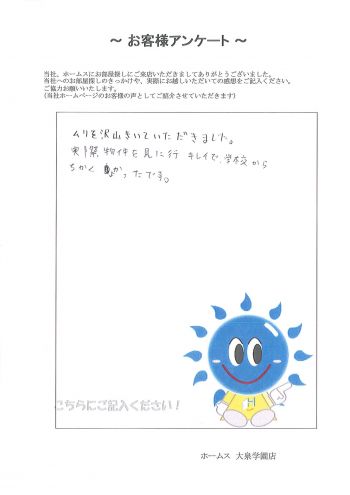 ～ お客様アンケート ～
当社、ホームスにお部屋探しにご来店いただきましてありがとうございました。
当社へのお部屋探しのきっかけや、実際にお越しいただいての感想をご記入ください。
ご協力お願いいたします。
(当社ホームページのお客様の声としてご紹介させていただきます)
ムリを沢山きいていただきました。
実際物件を見に行 キレイで、学校から
ちかく かったです。
こちらにご記入ください！
ホームス 大泉学園店